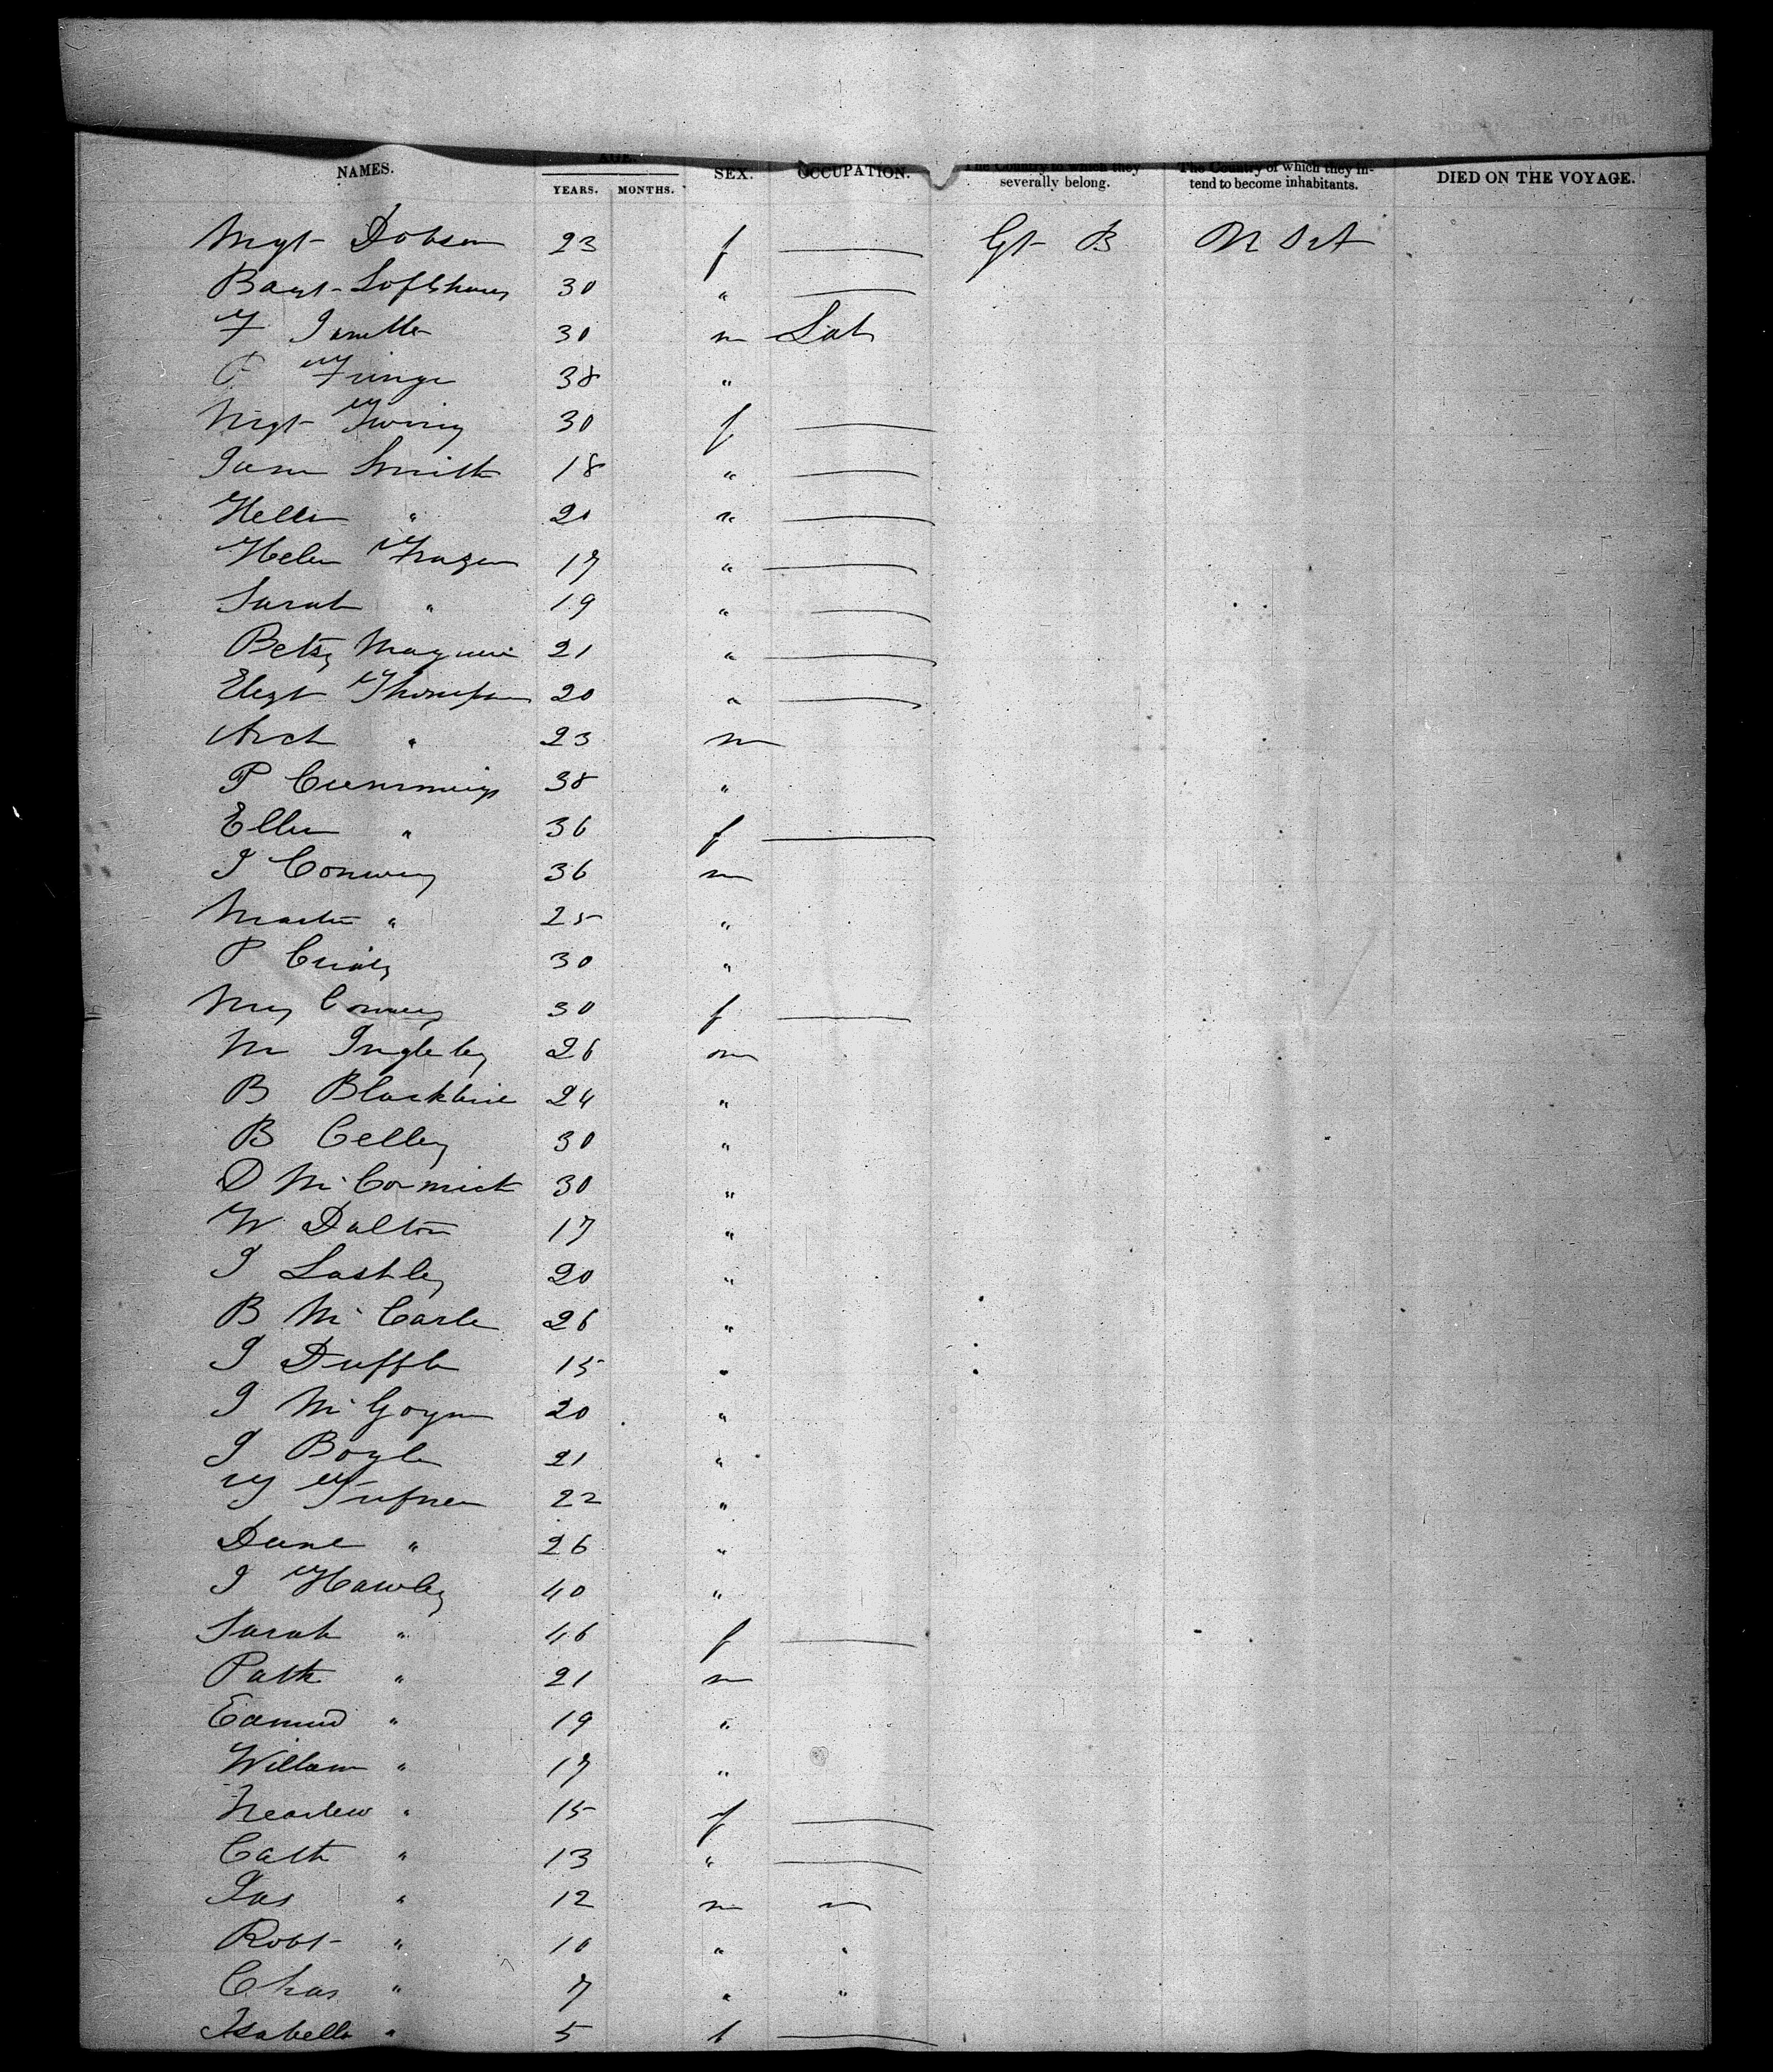 NAMES. AGE. YEARS. MONTHS. SEX. OCCUPATION. The Country to which they severally belong. The Country of which they intend to become inhabitants. DIED ON THE VOYAGE.
Mgt Dobson 23 f — Gt B
30 " —
F 30 m Lab
38 "
Mgt 30 f —
Jane Smith 18 " —
Hellen " 20 " —
Helen Frazer 17 " —
Sarah " 19 " —
Betsy Maguire 21 " —
Elizt Thompson 20 " —
Arch " 23 m
P Cummings 38 "
Ellen " 36 f —
J Conway 36 m
Martin " 25 "
P 30 "
Conway 30 f —
M Ingleby 26 m
B 24 "
B Celley 30 "
D McCormick 30 "
W Dalton 17 "
J Lashley 20 "
B McCarle 26 "
J 15 "
J 20 "
J Boyle 21 "
22 "
" 26 "
J Hawley 40 "
Sarah " 46 f —
Patk " 21 m
Edmund " 19 "
William " 17 "
" 15 f —
Cath " 13 " —
Jas " 12 m "
Robt " 10 " "
Chas " 7 " "
Isabella " 5 f —